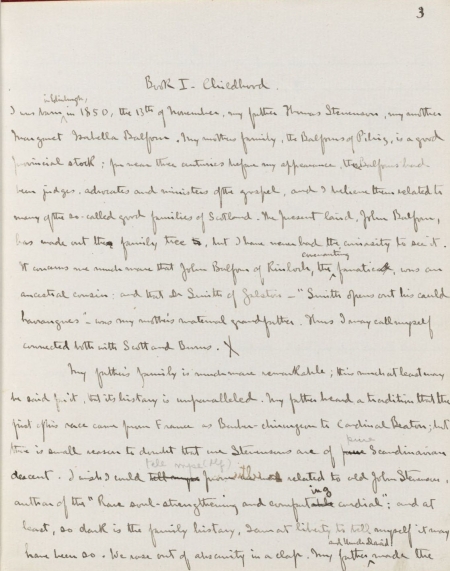 3
Book I - Childhood.
in Edinburgh,
I was born in 1850, the 13th of November, my father Thomas Stevenson, my mother
Margaret Isabella Balfour. My mother's family, the Balfours of Pilrig, is a good
provincial stock; for near three centuries before my appearance, the Balfours had
been judges, advocates and ministers of the gospel, and I believe them related to
many of the so-called good families of Scotland. The present laird, John Balfour,
has made out the family tree, but I have never had the curiosity to see it.
It concerns me much more that John Balfour of Kinloch, the covenanting fanatic, was an
ancestral cousin; and that Dr Smith of Galston - "Smith opens out his cauld
harrangues" - was my mother's maternal grandfather. Thus I may call myself
connected both with Scott and Burns. X
My father's family is much more remarkable; this much at least may
be said for it, that its history is unparalleled. My father heard a tradition that the
first of his race came from France as Barber-chirurgeon to Cardinal Beaton; but
there is small reason to doubt that we Stevensons are of pure Scandinavian
descent. I wish I could (tell myself) related to old John Stevenson,
author of the "Rare soul-strengthening and comforting cordial"; and at
least, so dark is the family history, I am at liberty to tell myself it may
and Uncle David
have been so. We rose out of obscurity in a clap. My father made the